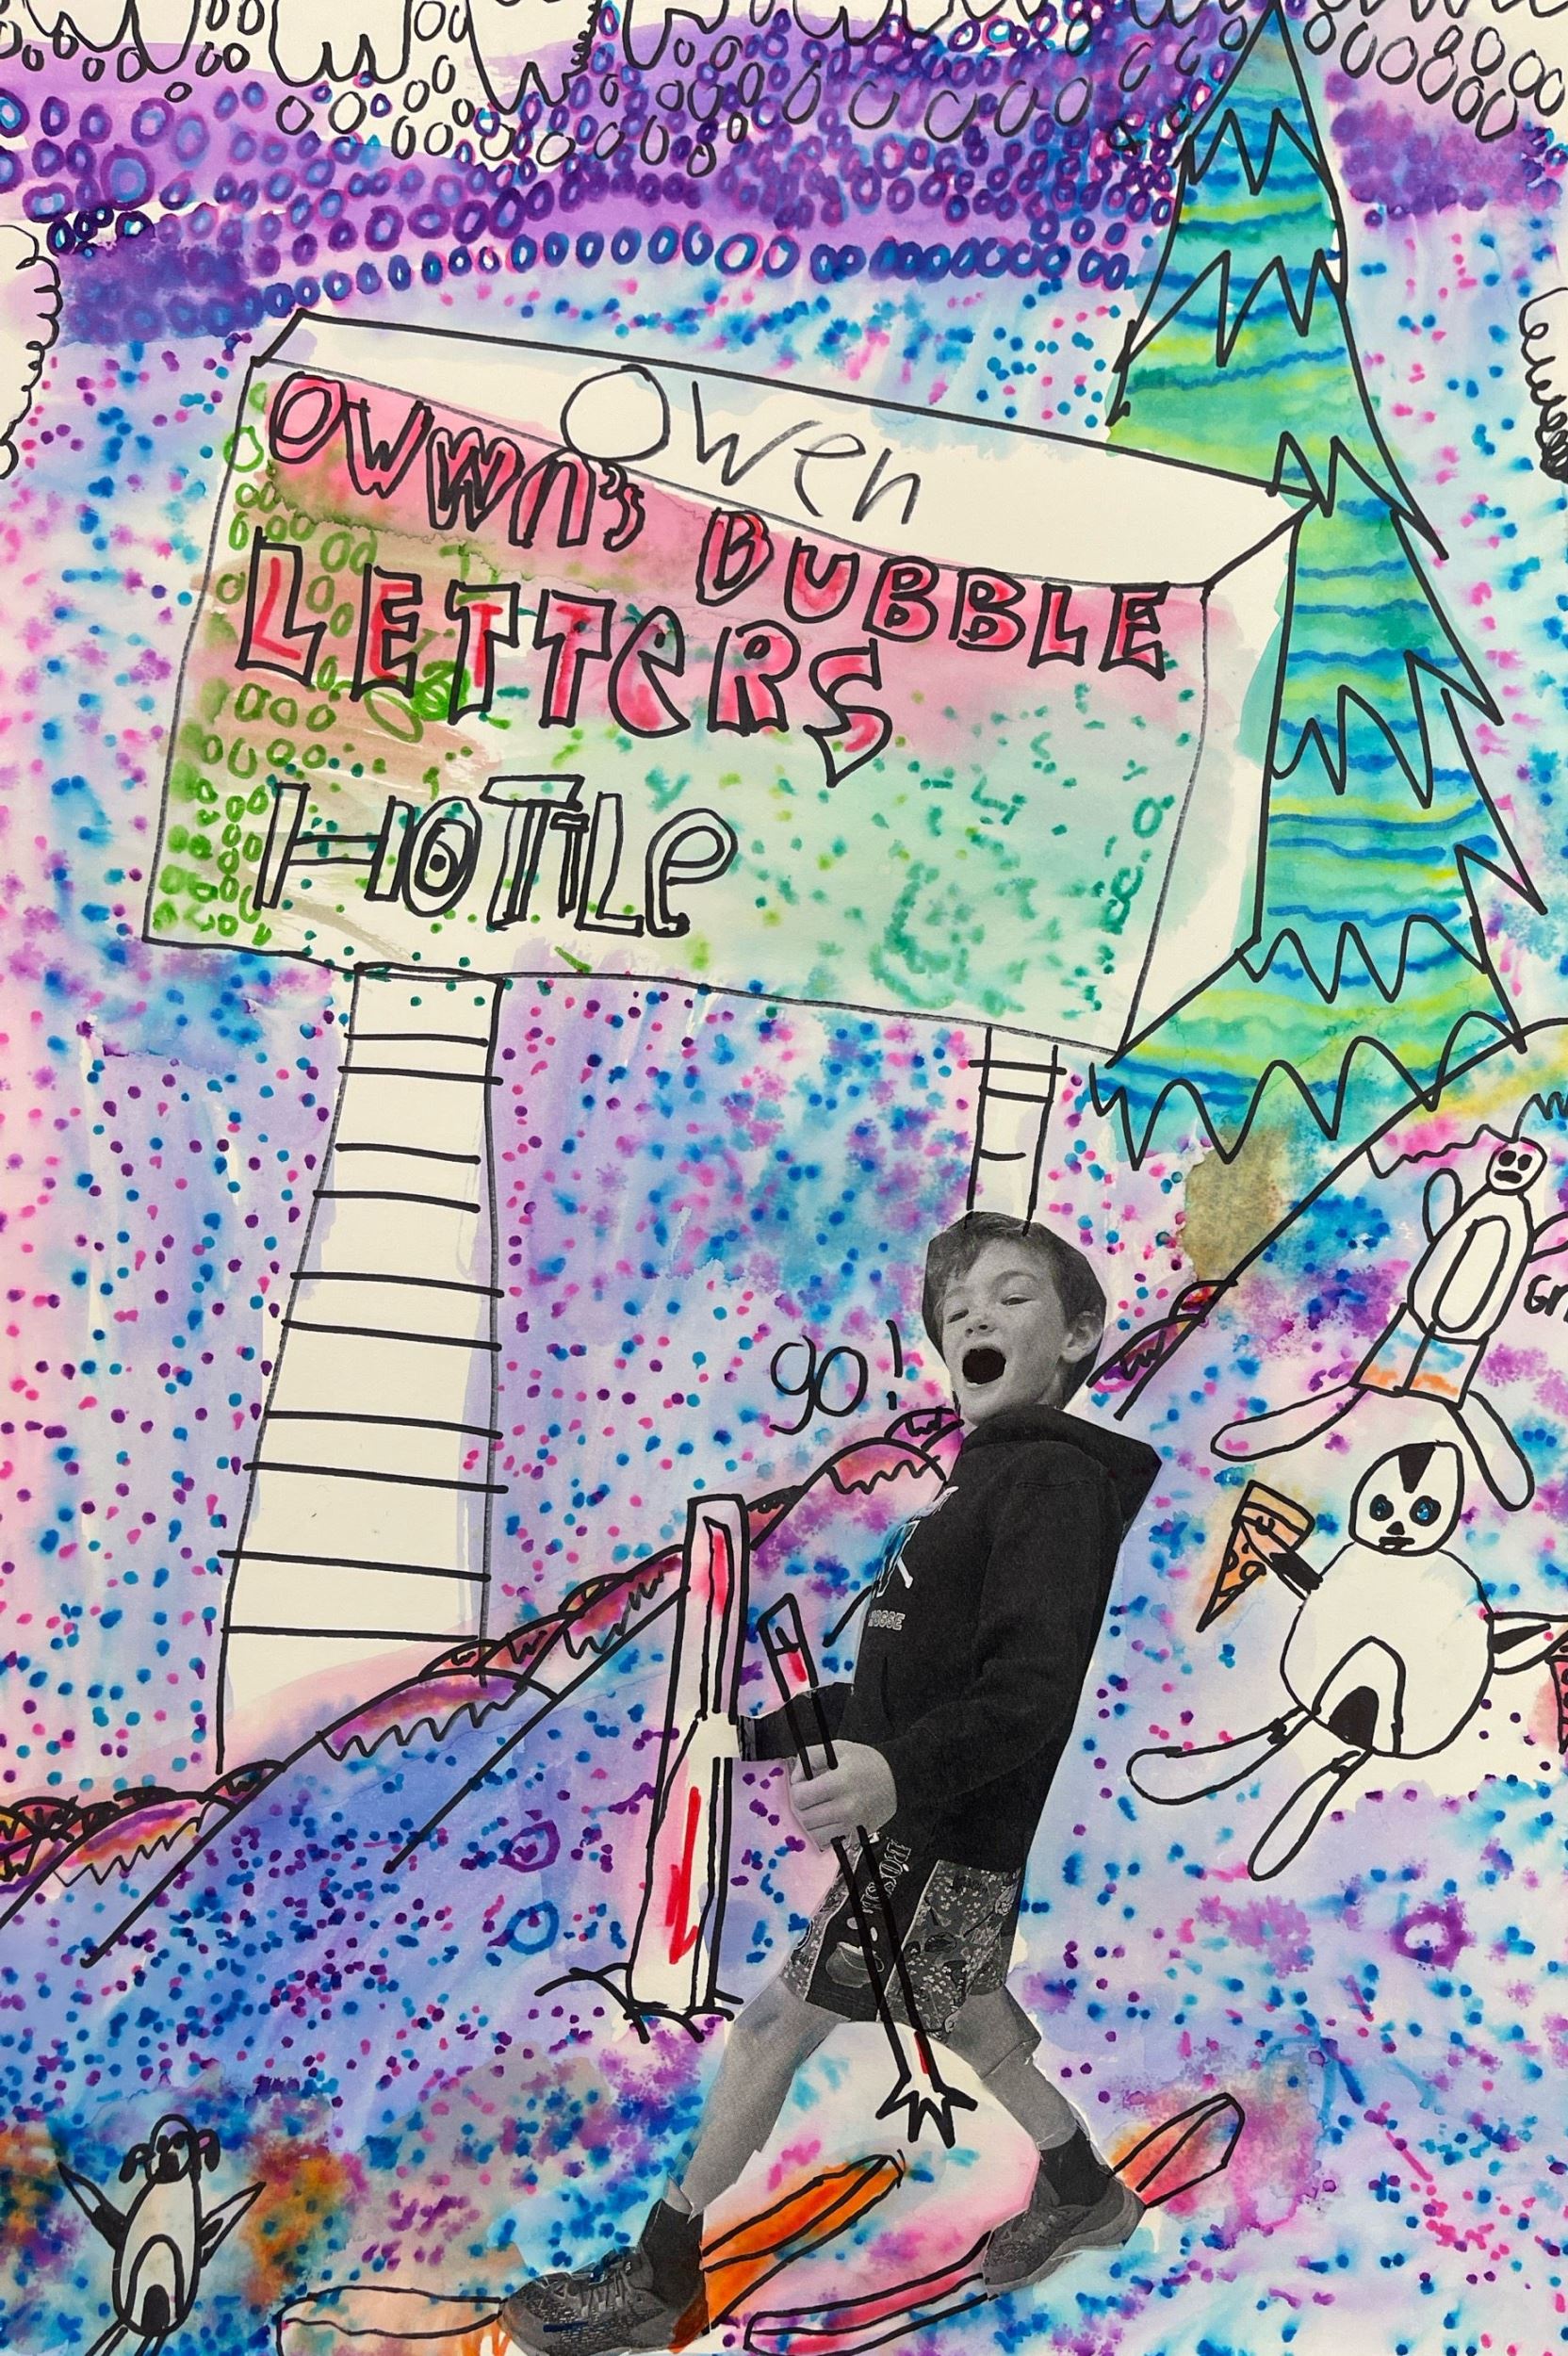 Owen
OWWn's BUBBLE
LETTeRS
HOTTLe
go!